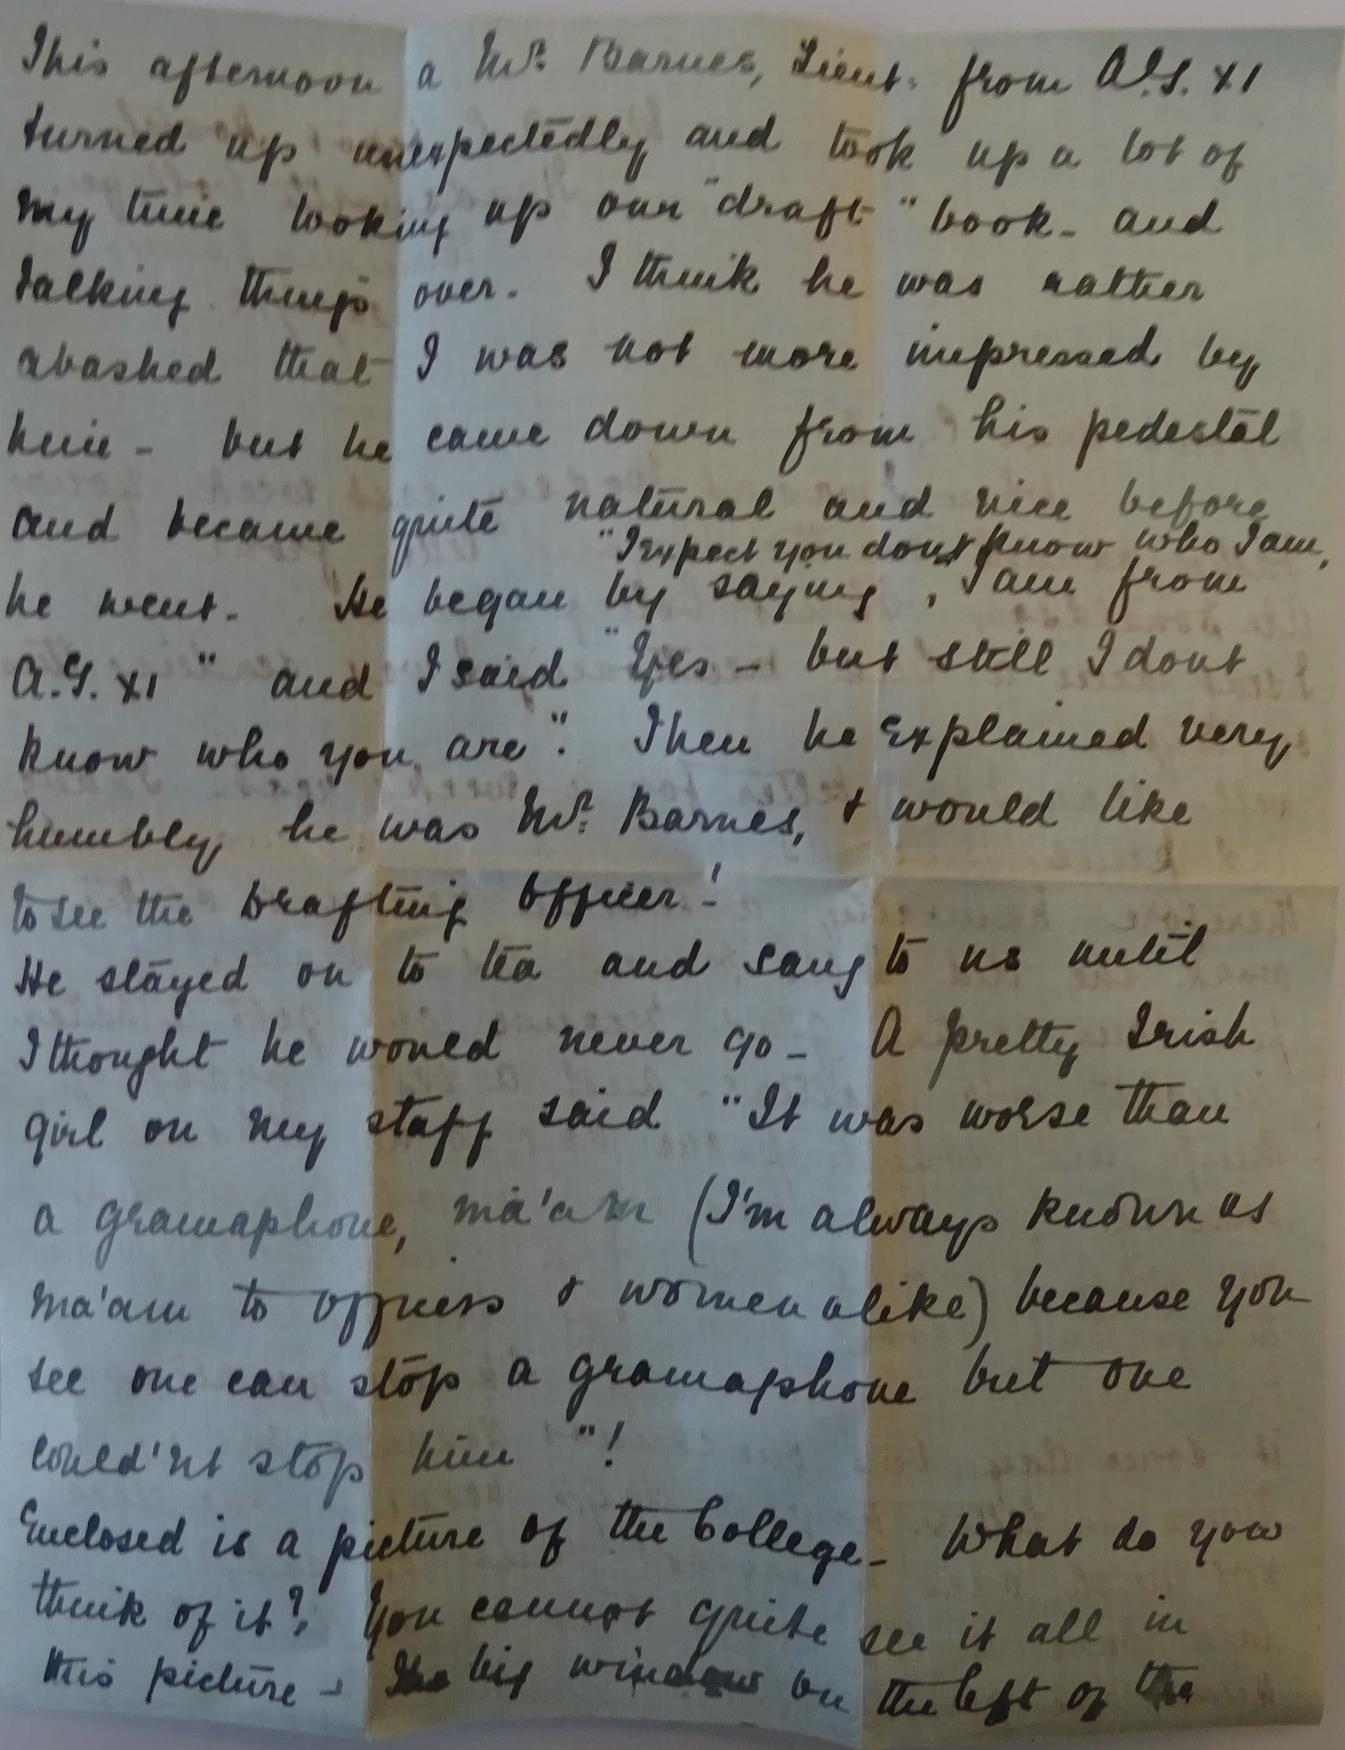 This afternoon a Mr. Barnes, Lieut. from A.G. XI
turned up unexpectedly and took up a lot of
my time looking up our "draft" book - and
talking things over. I think he was rather
abashed that I was not more impressed by
him - but he came down from his pedestal
and became quite natural and nice before
"I expect you dont know who I am,
he went. He began by saying, I am from
A.G. XI" and I said "Yes - but still I dont
know who you are". Then he explained very
humbly, he was Mr. Barnes, & would like
to see the Drafting Officer!
He stayed on to tea and sang to us until
I thought he would never go - A pretty Irish
girl on my staff said "It was worse than
a gramaphone, ma'am (I'm always known as
Ma'am to officers & women alike) because you
see one can stop a gramaphone but one
could'nt stop him"!
Enclosed is a picture of the College - What do you
think of it? You cannot quite see it all in
this picture - The big window on the left of the